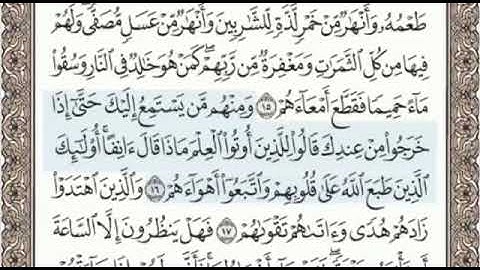 طَعْمُهُۥ وَأَنْهَٰرٌ مِّنْ خَمْرٍ لَّذَّةٍ لِّلشَّٰرِبِينَ وَأَنْهَٰرٌ مِّنْ عَسَلٍ مُّصَفًّى وَلَهُمْ
فِيهَا مِن كُلِّ ٱلثَّمَرَٰتِ وَمَغْفِرَةٌ مِّن رَّبِّهِمْ كَمَنْ هُوَ خَٰلِدٌ فِى ٱلنَّارِ وَسُقُوا۟
مَآءً حَمِيمًا فَقَطَّعَ أَمْعَآءَهُمْ ١٥ وَمِنْهُم مَّن يَسْتَمِعُ إِلَيْكَ حَتَّىٰٓ إِذَا
خَرَجُوا۟ مِنْ عِندِكَ قَالُوا۟ لِلَّذِينَ أُوتُوا۟ ٱلْعِلْمَ مَاذَا قَالَ ءَانِفًا أُو۟لَٰٓئِكَ
ٱلَّذِينَ طَبَعَ ٱللَّهُ عَلَىٰ قُلُوبِهِمْ وَٱتَّبَعُوٓا۟ أَهْوَآءَهُمْ ١٦ وَٱلَّذِينَ ٱهْتَدَوْا۟
زَادَهُمْ هُدًى وَءَاتَىٰهُمْ تَقْوَىٰهُمْ ١٧ فَهَلْ يَنظُرُونَ إِلَّا ٱلسَّاعَةَ